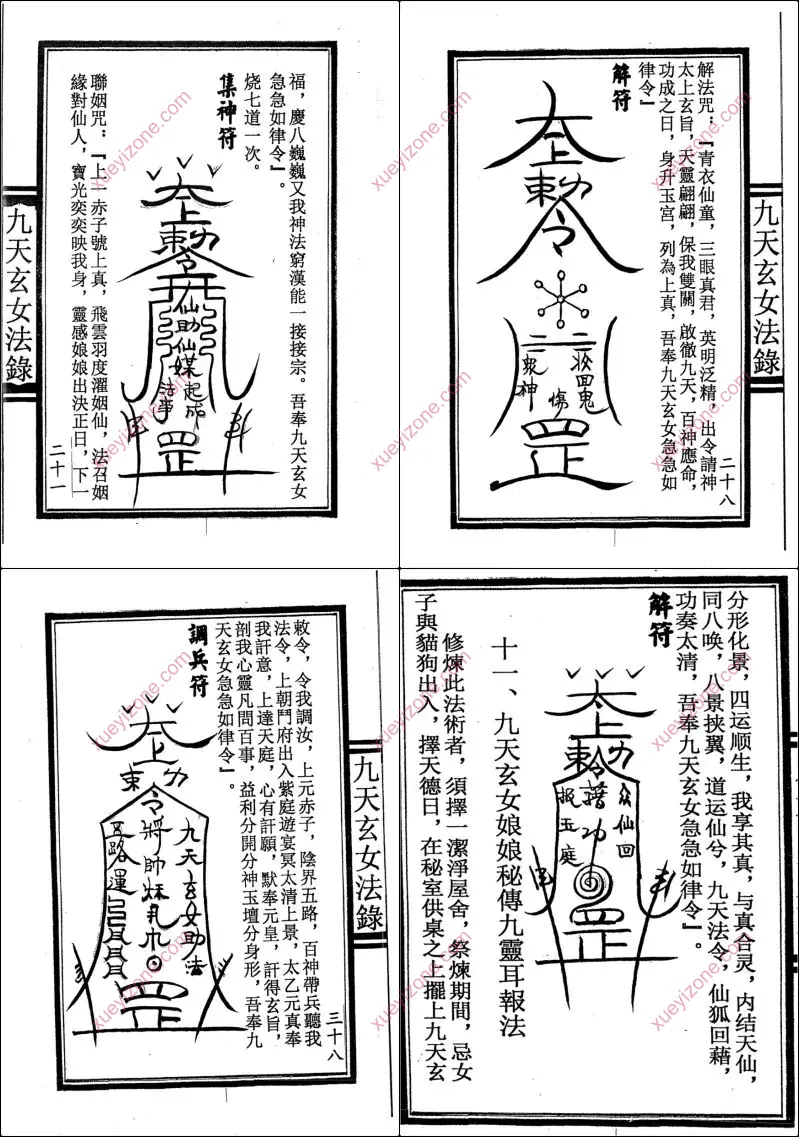 福，慶八巍巍又我神法窮漢能一接接宗。吾奉九天玄女
急急如律令』。
烧七道一次。
集神符
太上勅令
仙助仙媒起成法事
罡
聯姻咒：『上上赤子號上真，飛雲羽度濯姻仙，法召姻
緣對仙人，寶光奕奕映我身，靈感娘娘出決正日，下一
九天玄女法錄
二十一
解法咒：『青衣仙童，三眼真君，英明泛精，出令請神
太上玄旨，天靈翩翩，保我雙關，啟徹九天，百神應命，
功成之日，身升玉宮，列為上真，吾奉九天玄女急急如
律令』
解符
太上勅令
罡
九天玄女法錄
二十八
敕令，令我調汝，上元赤子，陰界五路，百神帶兵聽我
法令，上朝鬥府出入紫庭遊宴冥太清上景，太乙元真奉
我訐意，上達天庭，心有訐願，默奉元皇，訐得玄旨，
剖我心靈凡問百事，益利分開分神玉壇分身形，吾奉九
天玄女急急如律令』。
調兵符
太上勅令
九天玄女助法
將帥
五路運
罡
九天玄女法錄
三十八
分形化景，四运顺生，我享其真，与真合灵，内结天仙，
同八唤，八景挟翼，道运仙兮，九天法令，仙狐回藉，
功奏太清，吾奉九天玄女急急如律令』。
解符
太上勅令
众仙回
藉功
报五庭
罡
十一、九天玄女娘娘秘傳九靈耳報法
修煉此法術者，須擇一潔淨屋舍，祭煉期間，忌女
子與貓狗出入，擇天德日，在秘室供桌之上擺上九天玄
xueyizone.com
xueyizone.com
xueyizone.com
xueyizone.com
xueyizone.com
xueyizone.com
xueyizone.com
xueyizone.com